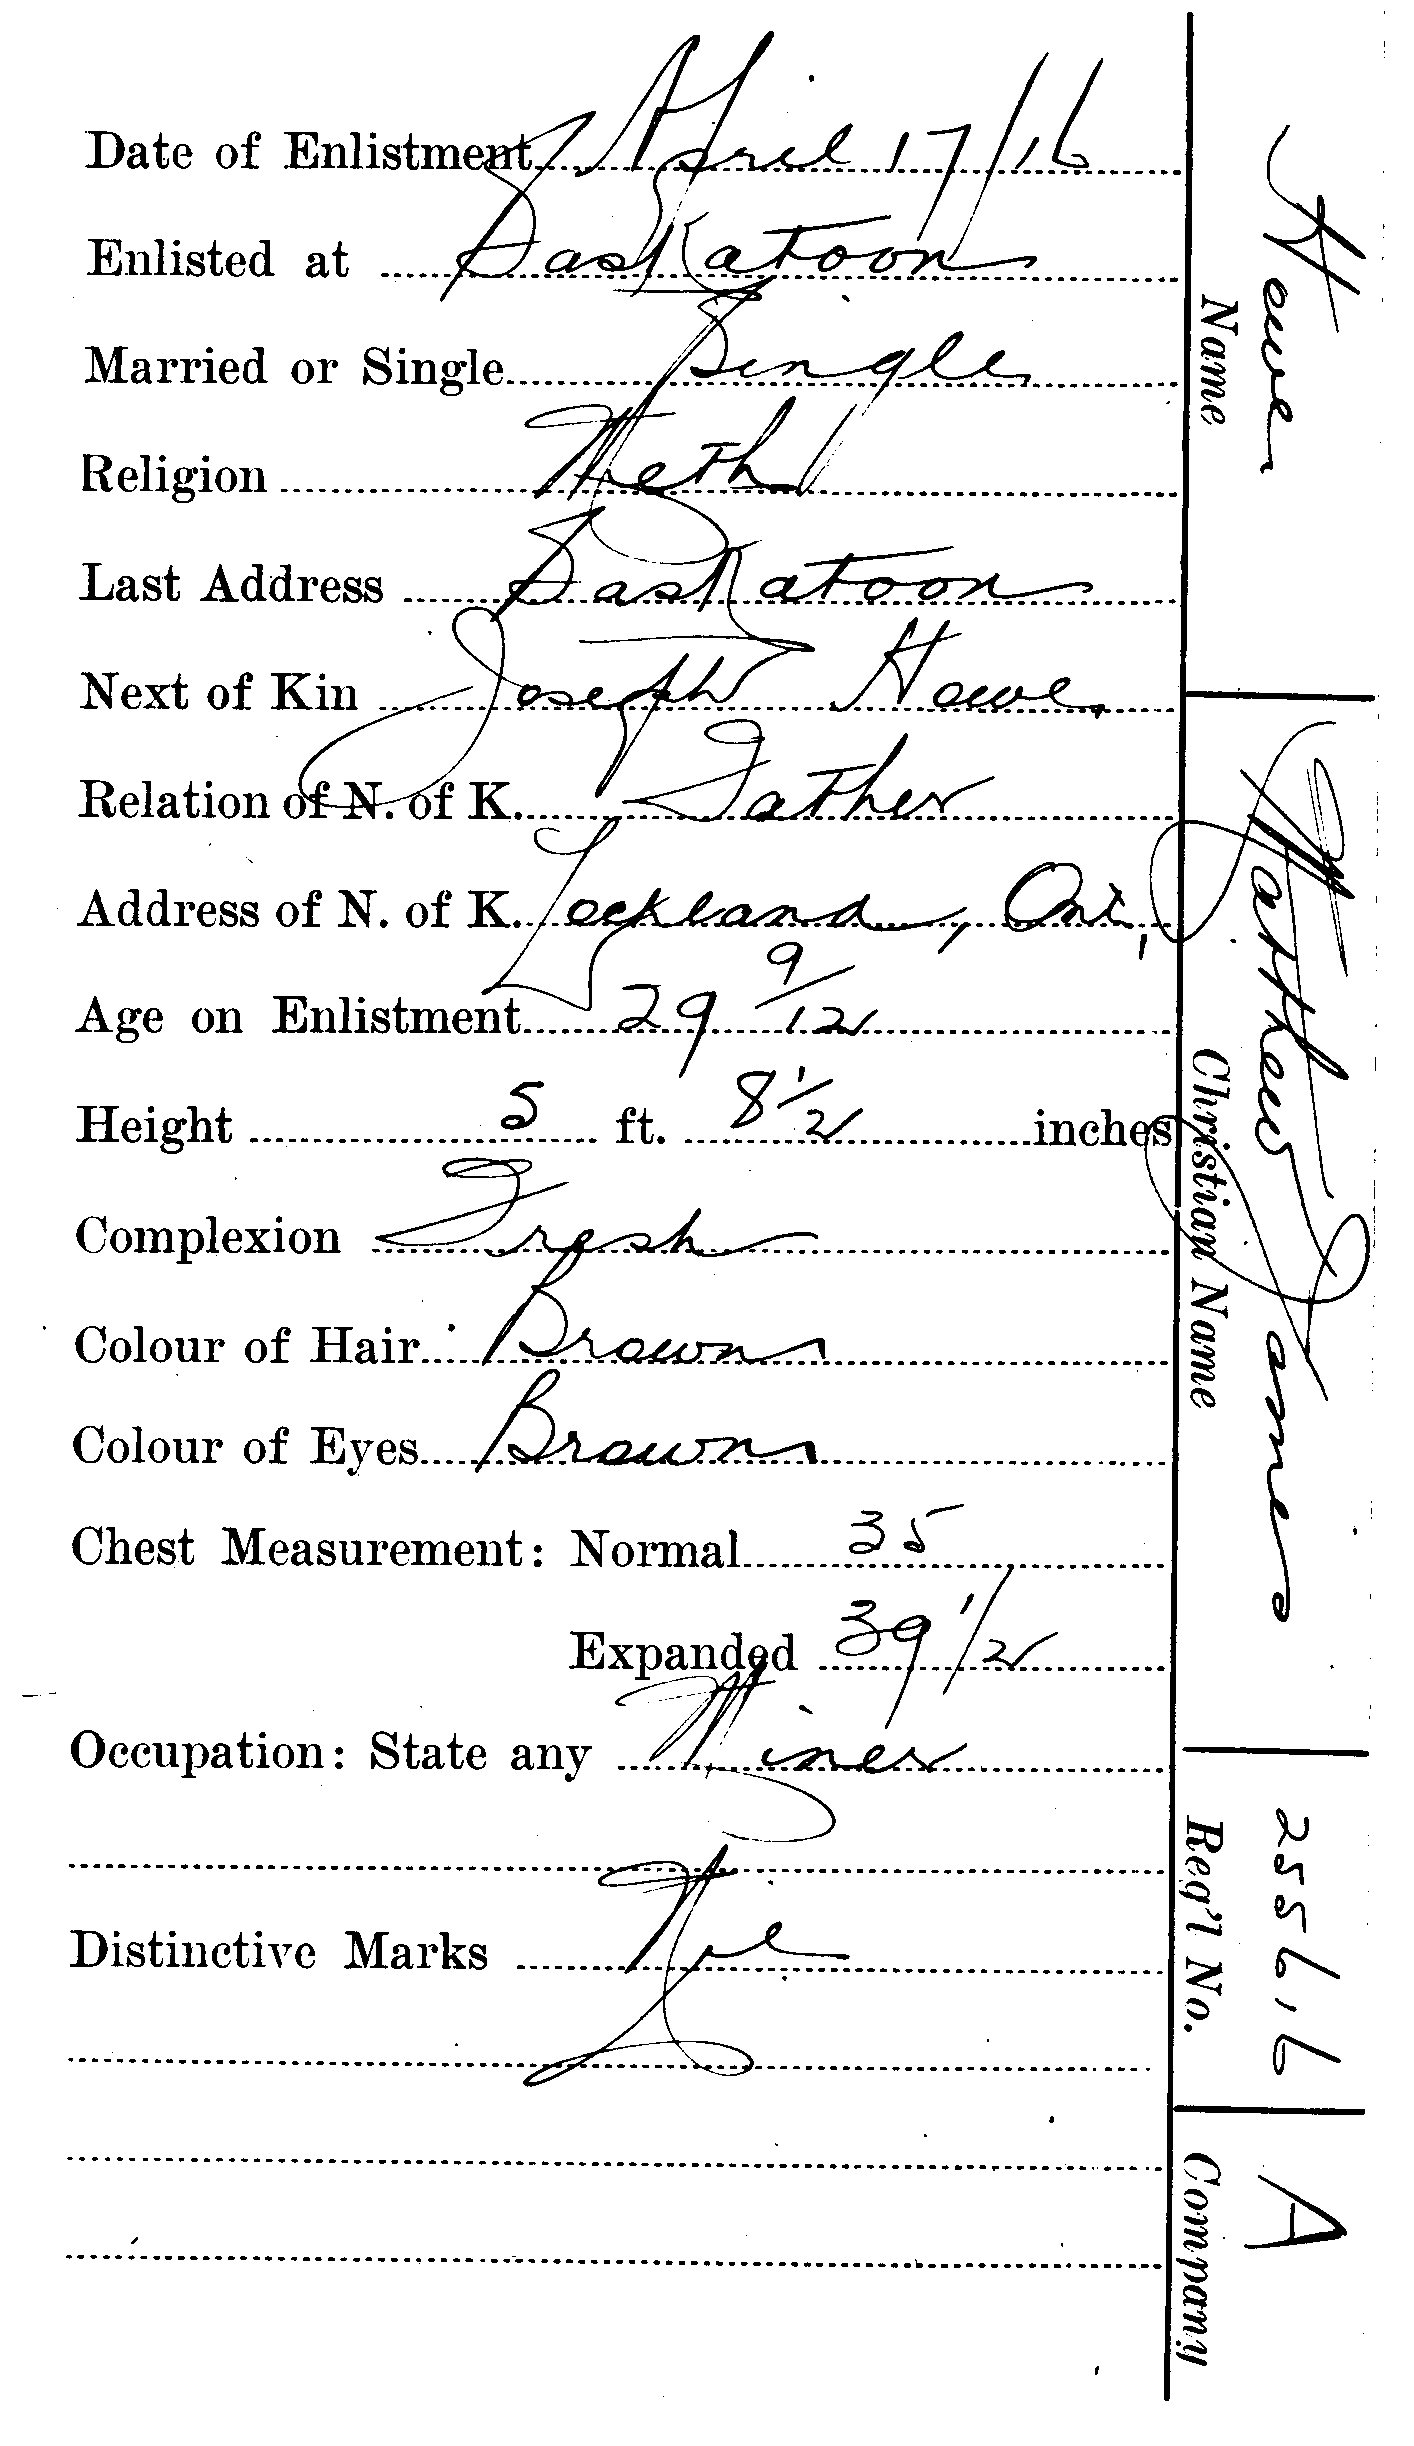 Date of Enlistment April 17/16
Enlisted at Saskatoon
Married or Single Single
Religion Meth
Last Address Saskatoon
Next of Kin Joseph Howe
Relation of N. of K. Father
Address of N. of K. Lockland, Ont,
Age on Enlistment 29 9/12
Height 5 ft. 8 1/2 inches
Complexion Fresh
Colour of Hair Brown
Colour of Eyes Brown
Chest Measurement: Normal 35
Expanded 39 1/2
Occupation: State any Miner
Distinctive Marks Nil
Howe Matthew James 255616 A
Name Christian Name Reg'l No. Company